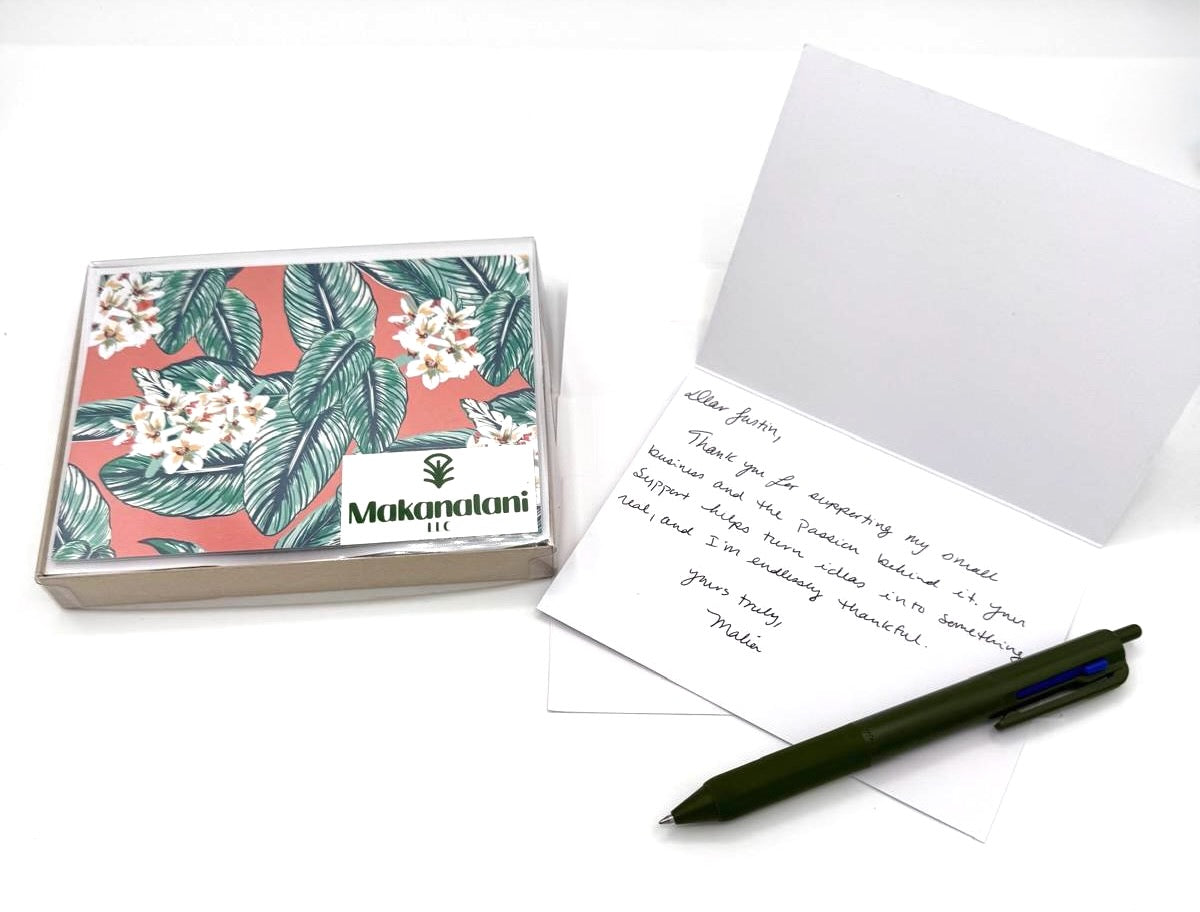 Makanalani
LLC
Dear Justin,
Thank you for supporting my small
business and the Passion behind it. Your
Support helps turn ideas into something
real, and I'm endlessly thankful.
yours truly,
Malia